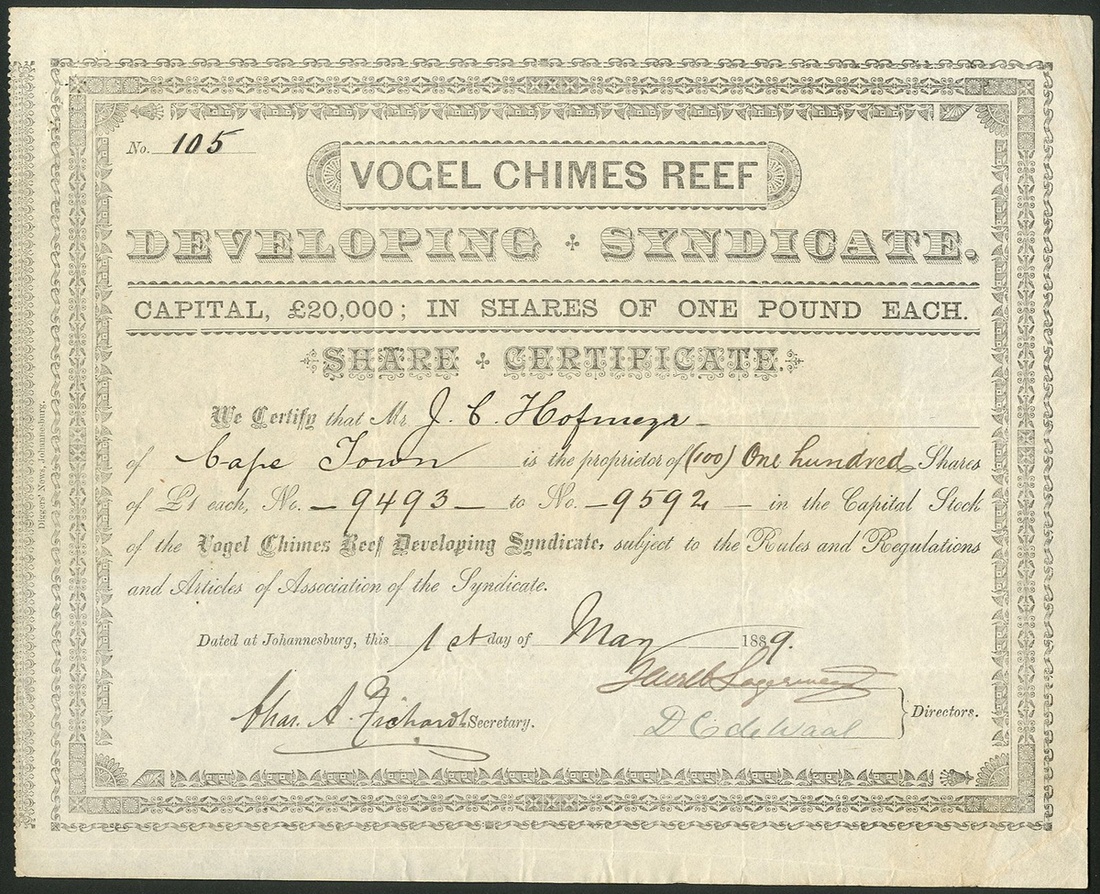 No. 105
VOGEL CHIMES REEF
DEVELOPING SYNDICATE.
CAPITAL, £20,000; IN SHARES OF ONE POUND EACH.
SHARE CERTIFICATE.
We Certify that Mr J. C. Hofmeyr
of Cape Town is the proprietor of (100) One hundred Shares
of £1 each, No. 9493 to No. 9592 in the Capital Stock
of the Vogel Chimes Reef Developing Syndicate, subject to the Rules and Regulations
and Articles of Association of the Syndicate.
Dated at Johannesburg, this 1st day of May 1889.
Chas. A. Fichardt Secretary.
D C de Waal
Directors.
Diggers' News, Johannesburg.